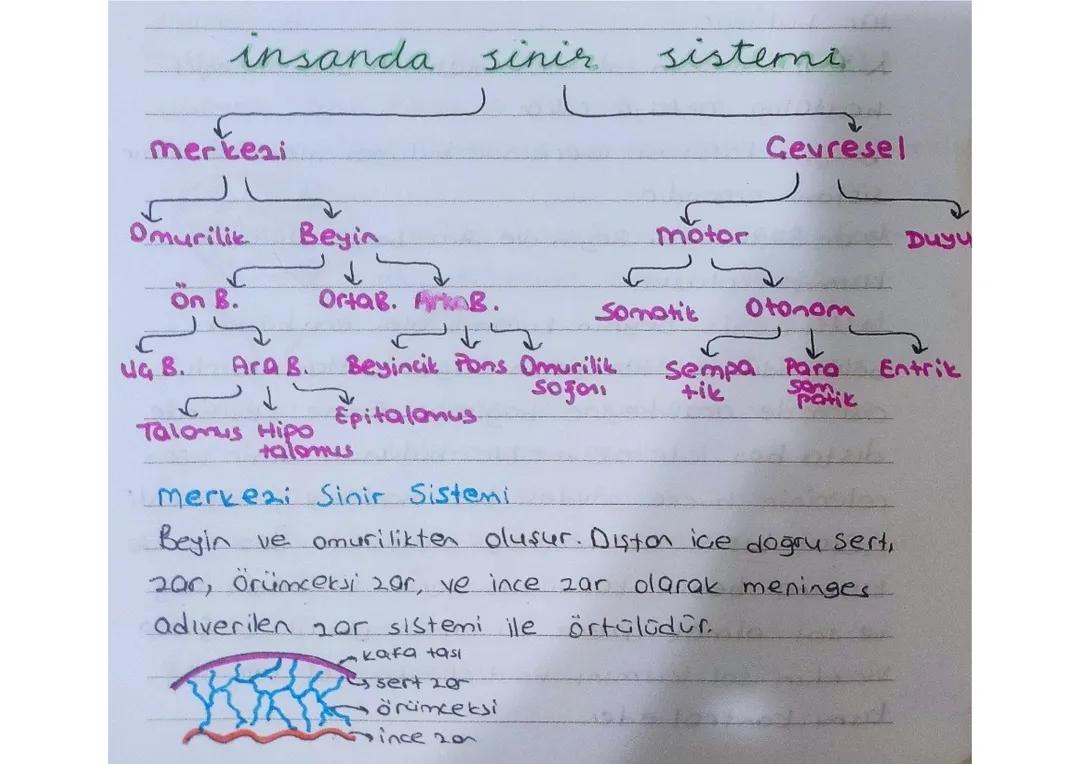 insanda sinir sistemi
merkezi Çevresel
Omurilik Beyin motor Duyu
Ön B. OrtaB. ArkaB. Somatik Otonom
Uç B. Ara B. Beyincik Pons Omurilik soğanı Sempatik Para sempatik Entrik
Talamus Hipotalamus Epitalamus
merkezi Sinir Sistemi
Beyin ve omurilikten oluşur. Dıştan içe doğru Sert,
zar, Örümceksi zar, ve ince zar olarak meninges
adıverilen zar sistemi ile örtülüdür.
kafa tası
sert zar
örümceksi
ince zar